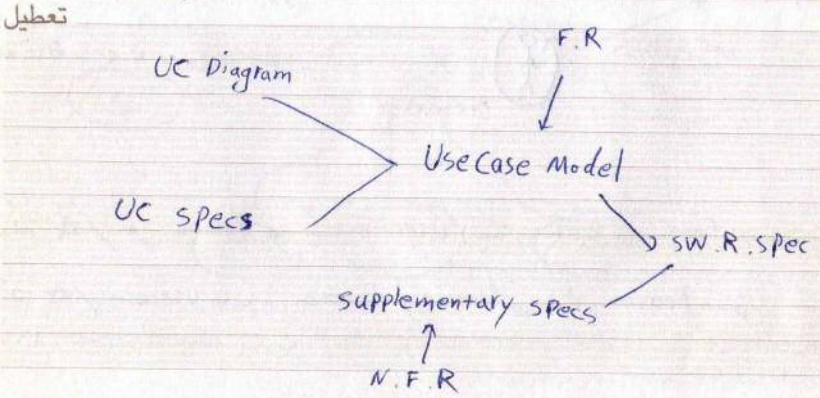 تعطيل
F.R
UC Diagram
UseCase Model
UC Specs
SW.R.Spec
Supplementary Specs
N.F.R